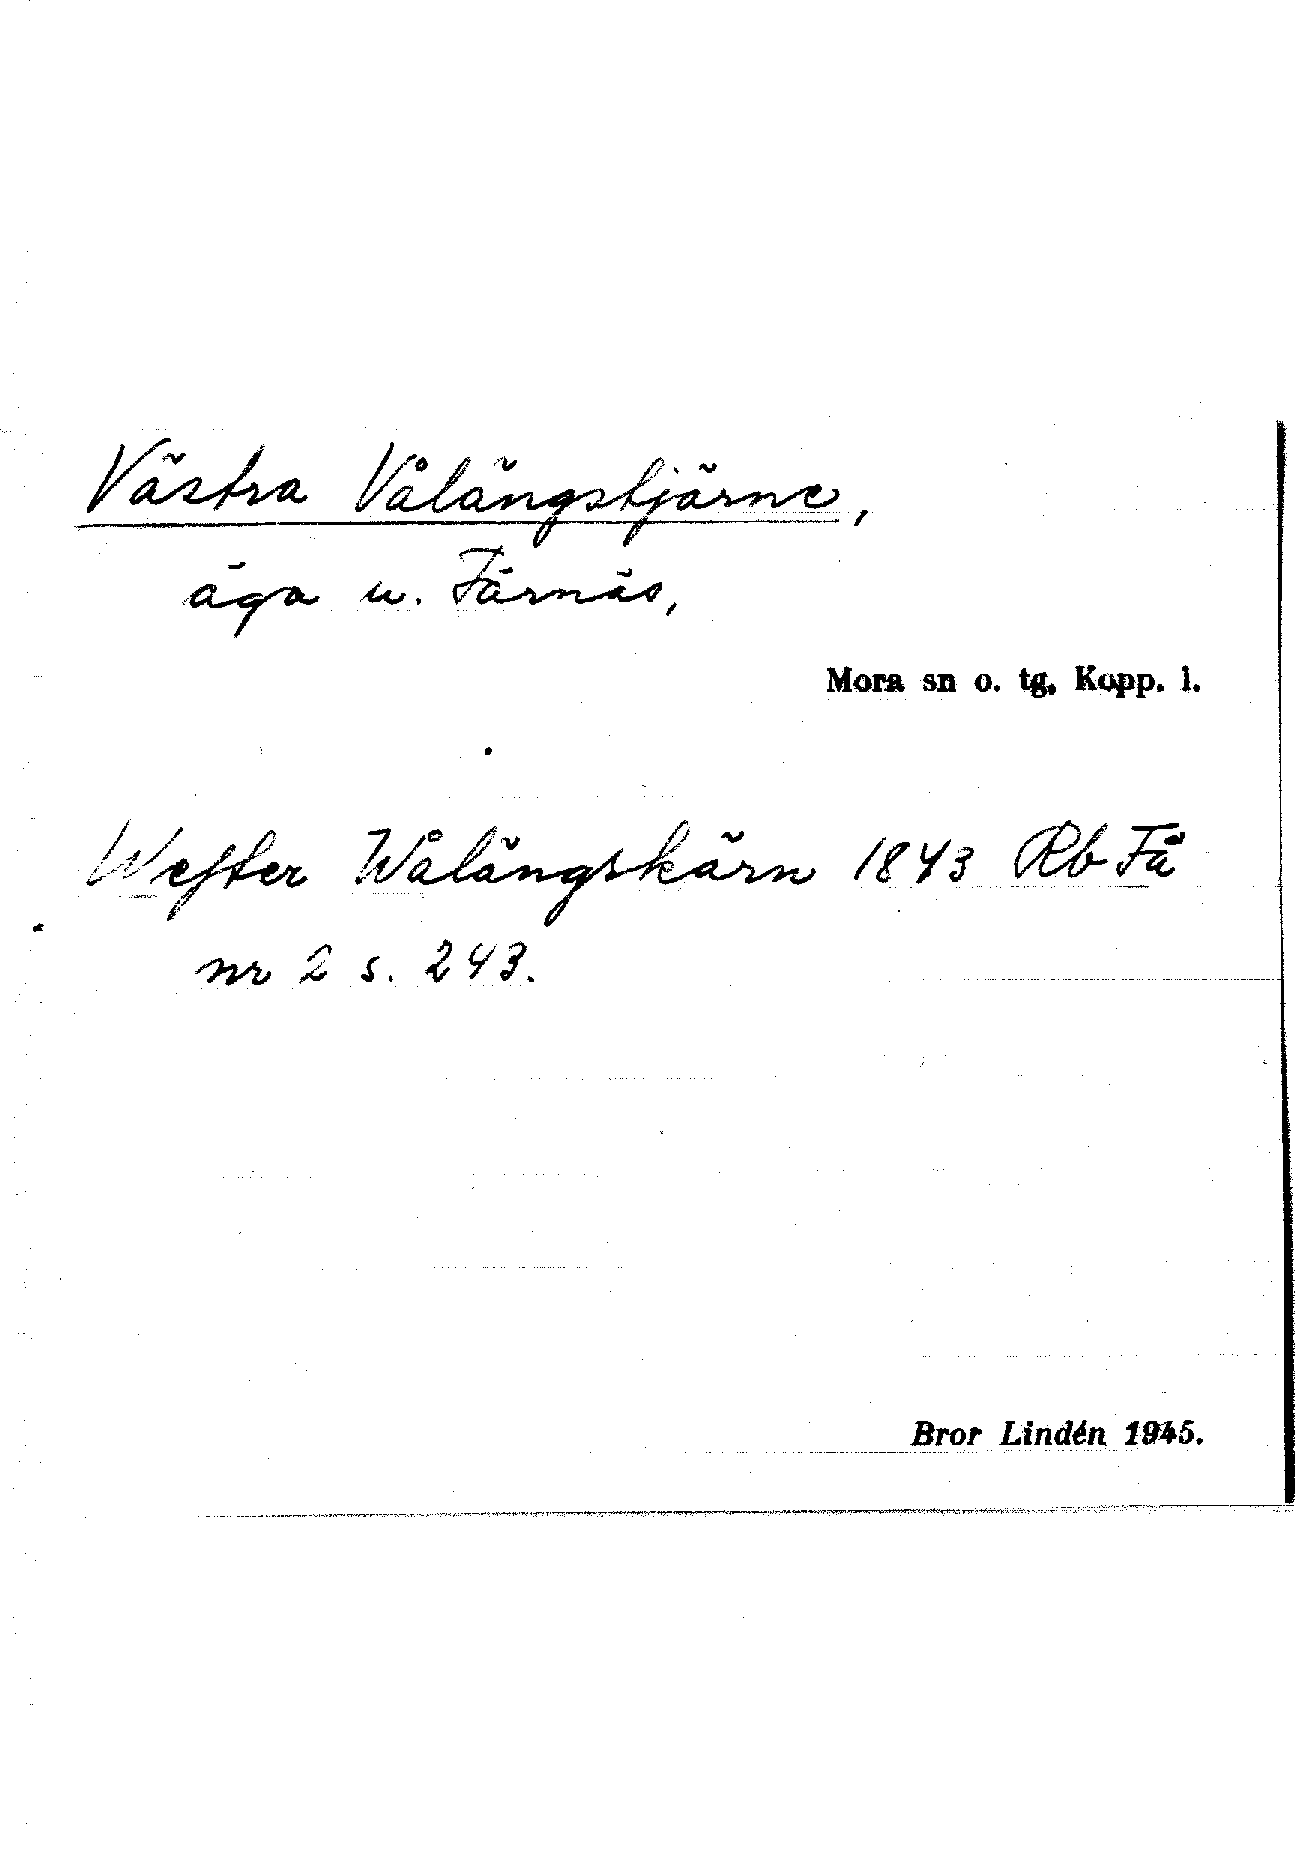 Västra Vålängstjärne,
äga u. Färnäs,
Mora sn o. tg, Kopp. l.
Wester Wålängskärn 1843 Rb Få
nr 2 s. 243.
Bror Lindén 1945.